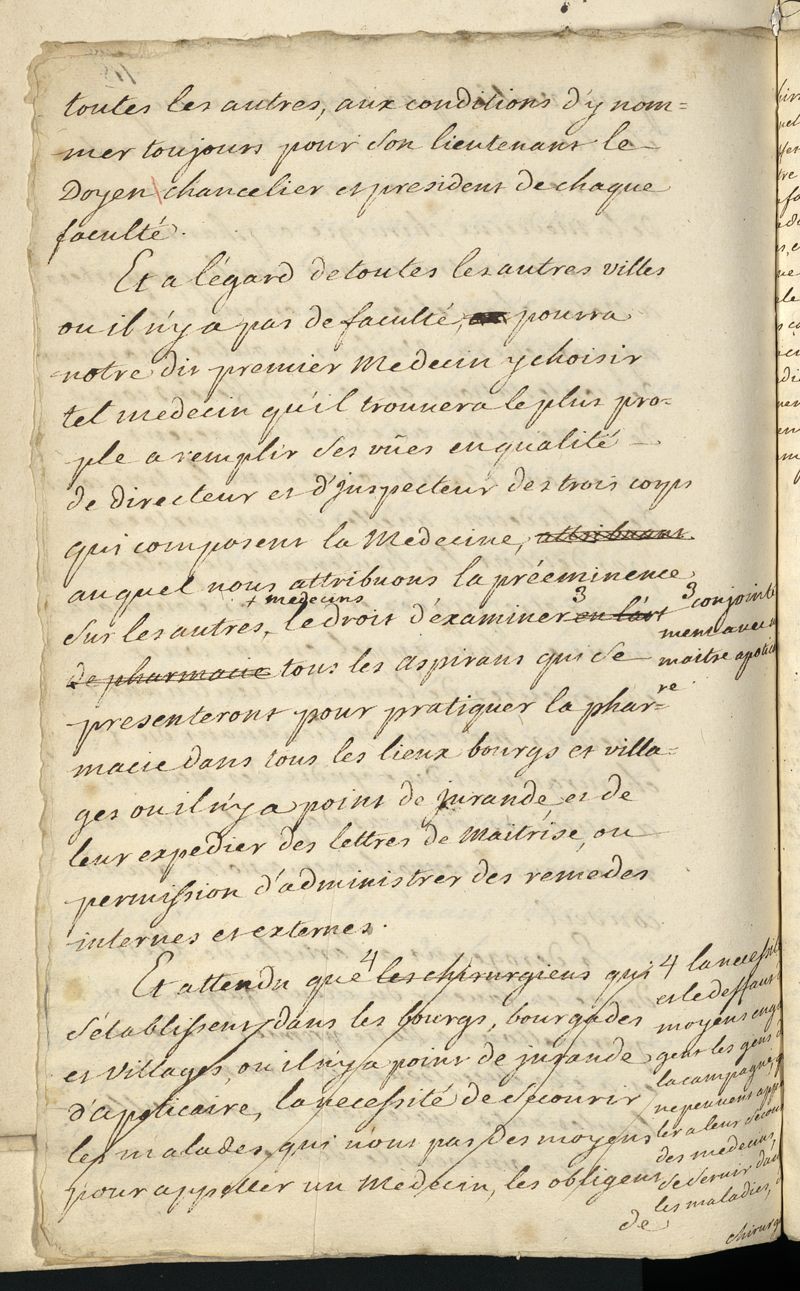 toutes les autres, aux conditions d'y nom=
mer toujours pour son lieutenant le
Doyen chancelier et president de chaque
faculté.
Et a légard de toutes les autres villes
ou il n'y a pas de faculté, pourra
notre dit premier Medecin y choisir
tel medecin qu'il trouuera le plus pro=
ple a remplir ses vûes en qualité
de directeur et d'Inspecteur des trois corps
qui composent la Medecine, attribuant
auquel nous attribuons la prééminence
+ medecins
sur les autres, + le droit d'éxaminer 3 en l'art
3 conjointe
ment auec
maitre apotic
re
de pharmacie tous les aspirans qui se
presenteront pour pratiquer la phar=
macie dans tous les lieux bourgs et villa=
ges ou il n'y a point de jurande et de
leur expedier des lettres de Maitrise, ou
permission d'administrer des remedes
internes et externes.
Et attendu que 4 les chirurgiens qui
s'établissent dans les bourgs, bourgades
et villages, ou il n'y a point de jurande
d'apoticaire, la necessité de secourir
les malades qui n'ont pas des moyens
pour appeller un Medecin, les obligent
4 la necessit
et le deffaut
moyens eng
gent les gens
la campagne, q
ne peuuent app
ler a leur secour
des medecins
se seruir dan
les maladies,
chirurg
de